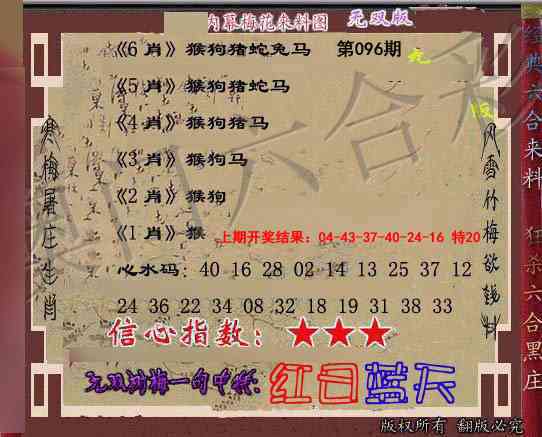 内幕梅花来料图 无双版
《6肖》猴狗猪蛇兔马 第096期
《5肖》猴狗猪蛇马
《4肖》猴狗猪马
《3肖》猴狗马
《2肖》猴狗
《1肖》猴 上期开奖结果：04-43-37-40-24-16 特20
心水码：40 16 28 02 14 13 25 37 12
24 36 22 34 08 32 18 19 31 38 33
信心指数：★★★
无双浏梅一句中特:红日蓝天
寒梅屠庄生肖
风雪竹梅欲钱料
经典六合来料 狂杀六合黑庄
版权所有 翻版必究